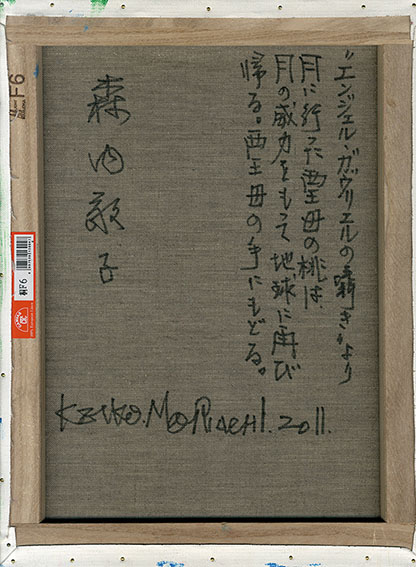 "エンジェル・ガヴリエルの囁き"より
月に行った西王母の桃は
月の威力をもって地球に再び
帰る。西王母の手にもどる。
森内敬子
KEIKO.MORIUCHI.2011.
F6
桐F6